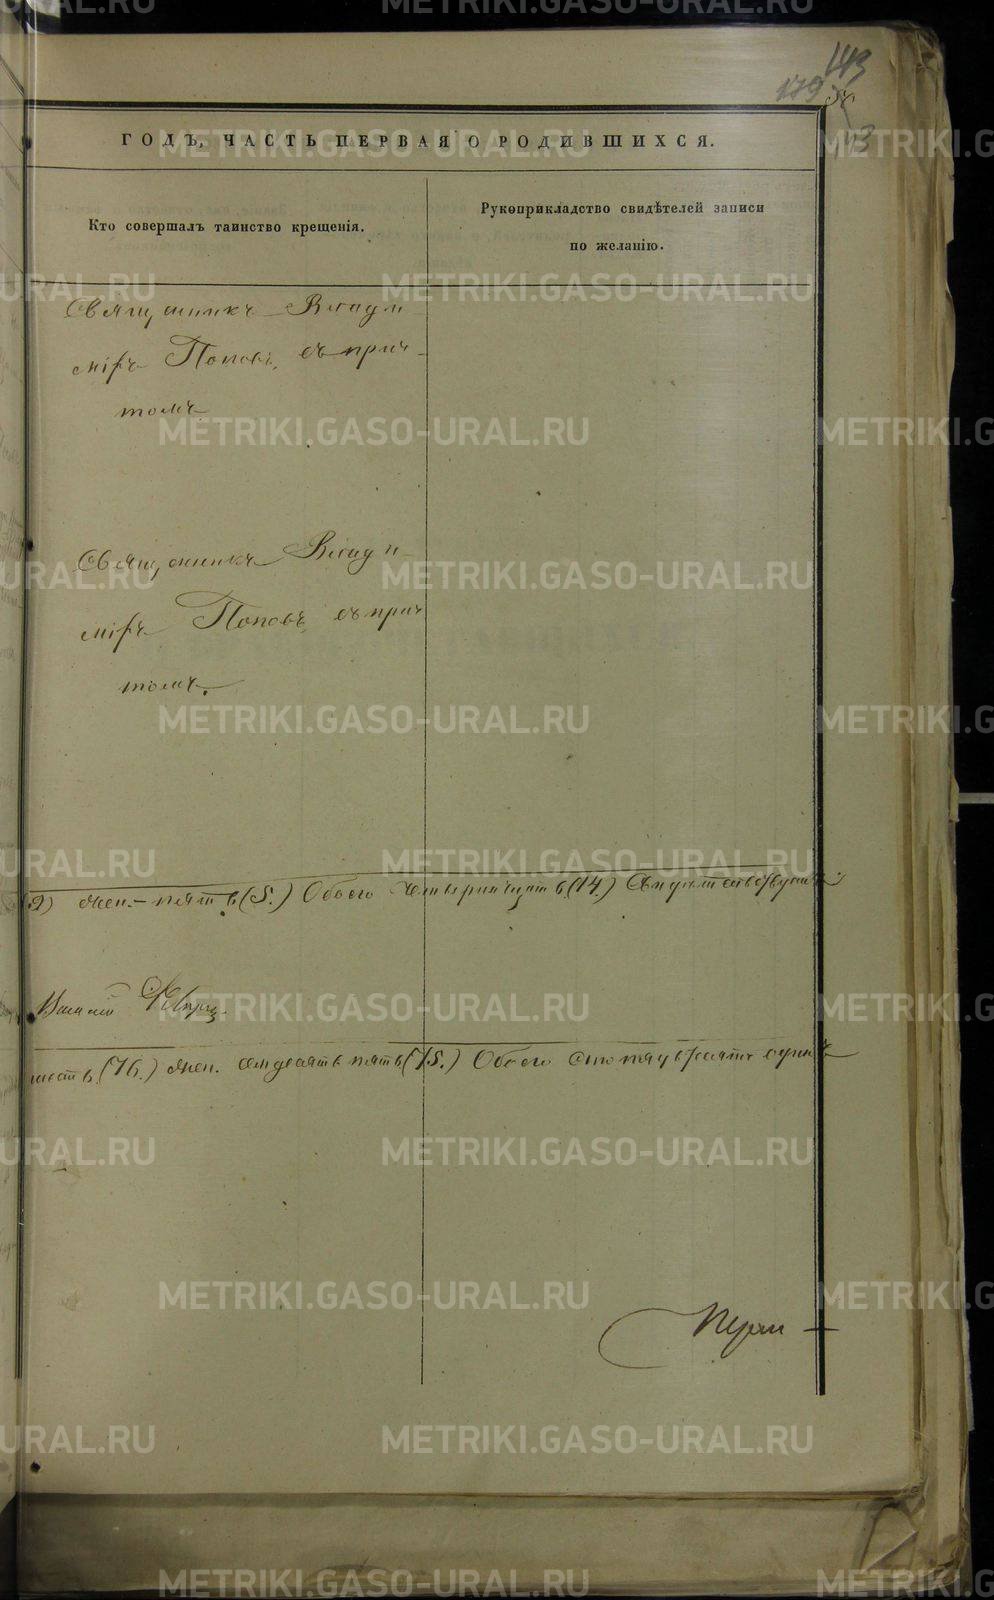 143
179
ГОДЪ, ЧАСТЬ ПЕРВАЯ О РОДИВШИХСЯ.
Кто совершалъ таинство крещенія.
Рукоприкладство свидѣтелей записи
по желанію.
Священникъ Влади-
міръ Поповъ, съ прич-
томъ
Священникъ Влади-
міръ Поповъ съ прич
томъ.
9) жен.- пять (5.) Обоего четырнадцать (14.)
Василій
шесть (76.) жен. семдесять пять (75.) Обоего сто пятдесять одинъ
METRIKI.GASO-URAL.RU